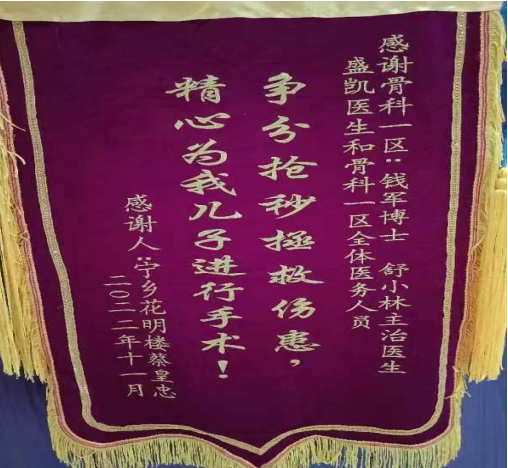 感谢骨科一区：钱军博士 舒小林主治医生
盛凯医生和骨科一区全体医务人员
争分抢秒拯救伤患，
精心为我儿子进行手术！
感谢人：宁乡花明楼蔡皇忠
二〇二二年十一月